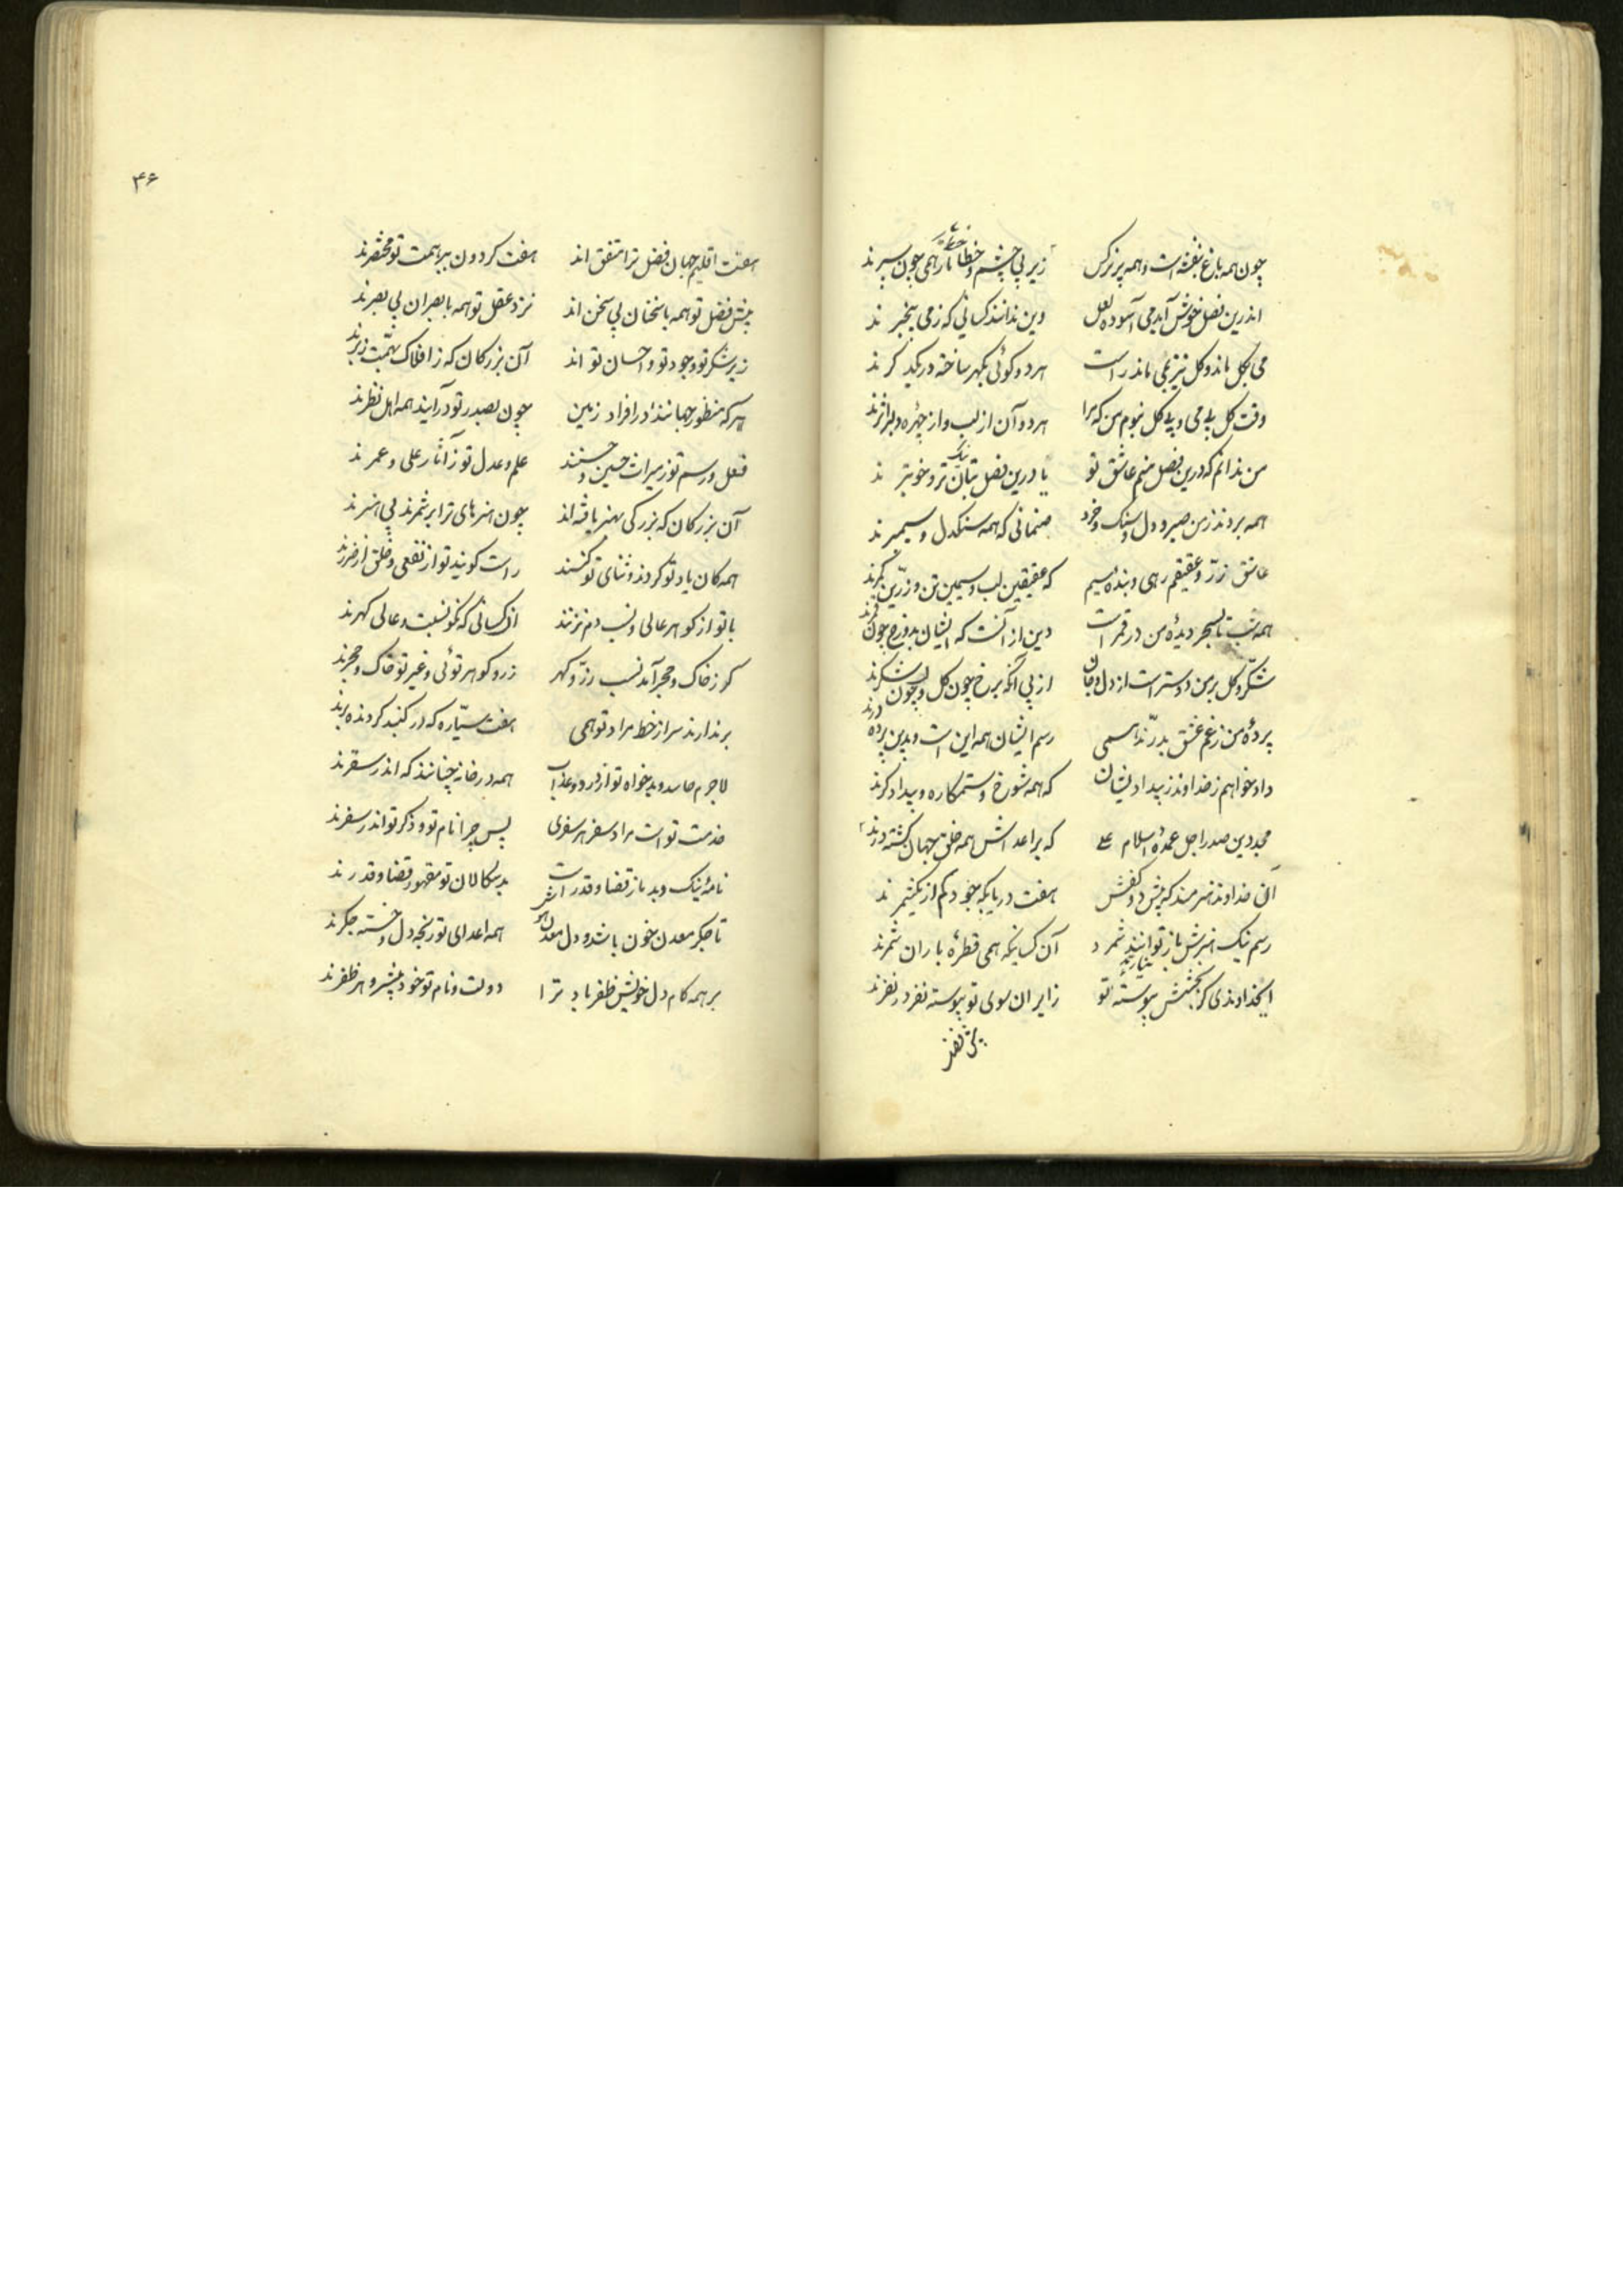 چون همه باغ بنفشه است و همه پر نرکس زیر پی چشم و خطا نرا همی چون سپرند
اندرین فصل خوش آید می آسوده لعل وین ندانند کسانی که ز می بیخبرند
می بکل ماند و کل نیز بمی ماند راست هر دو کوئی بکهر ساخته در یکدکرند
وقت کل بی می و بی کل نبوم من که مرا هر دو آن از لب و از چهره دلبر اثرند
من ندانم که درین فصل منم عاشق تو یا درین فصل بتان نیک تر و خوبترند
همه بردند ز من صبر و دل و سنک و خرد صنمانی که همه سنکدل و سیمبرند
عاشق زرّ و عقیقم رهی و بنده سیم که عقیقین لب و سیمین تن و زرّین کمرند
همه شب تا بسحر دیده من در قمر است وین از آنست که ایشان بدو رخ چون قمرند
شکّر و کل بر من دوستر است از دل و جان از پی آنکه برخ چون کل و لب چون شکرند
پرده من ز غم عشق بدرّند همی رسم ایشان همه این است و بدین پرده درند
داد خواهم ز خداوند ز بیداد بشان که همه شوخ و ستمکاره و بیدادکرند
مجد دین صدر اجل عمدهٔ اسلام علی که بر اعداش همه خلق جهان کشته درند
آن خداوند هنرمند که پیش دو کفش هفت دریا یکه جود کم از یک شمرند
رسم نیک و هنرش باز توانند شمرد آن کسانیکه همی قطرهٔ باران شمرند
ایخداوندی کز بخشش پیوستهٔ تو زایران سوی تو پیوسته نفر در نفرند
۴۶
هفت اقلیم جهان فضل ترا متفق اند هفت کردون ببر همت تو مختصرند
پیش فضل تو همه با سخنان بی سخن اند نزد عقل تو همه با بصران بی بصرند
زیر شکر تو و جود تو و احسان تو اند آن بزرکان که ز افلاک بهمّت زبرند
هر که منظور جهانند در افراد زمین چون بصدر تو درآیند همه اهل نظرند
فعل و رسم تو ز میراث حسین و حسنند علم و عدل تو ز آثار علی و عمرند
آن بزرکان که بزرکی بهنر یافته اند چون هنرهای ترا بر شمرند بی هنرند
همکان یاد تو کردند و ثنای تو کشند راست کویند تو از نفعی و خلق از ضررند
با تو از کوهر عالی و نسب دم نزنند آن کسانی که نکو نسبت و عالی کهرند
کر ز خاک و حجر آمد نسب زرّ و کهر زر و کوهر توئی و غیر تو خاک و حجرند
بر ندارند سر از خط مراد تو همی هفت سیّاره که در کنبد کردنده برند
لاجرم حاسد و بدخواه تو از درد و عذاب همه در خانه چنانند که اندر سقرند
خدمت تو است مراد سفر هر سفری پس چرا نام تو و ذکر تو اندر سفرند
نامهٔ نیک و بد باز قضا و قدر است بدسکالان تو مقهور قضا و قدرند
تا جکر معدن خون باشد و دل معدن همه اعدای تو رنجه دل و خسته جکرند
بر همه کام دل خویش ظفر باد ترا دولت و نام تو خود پیشرو هر ظفرند